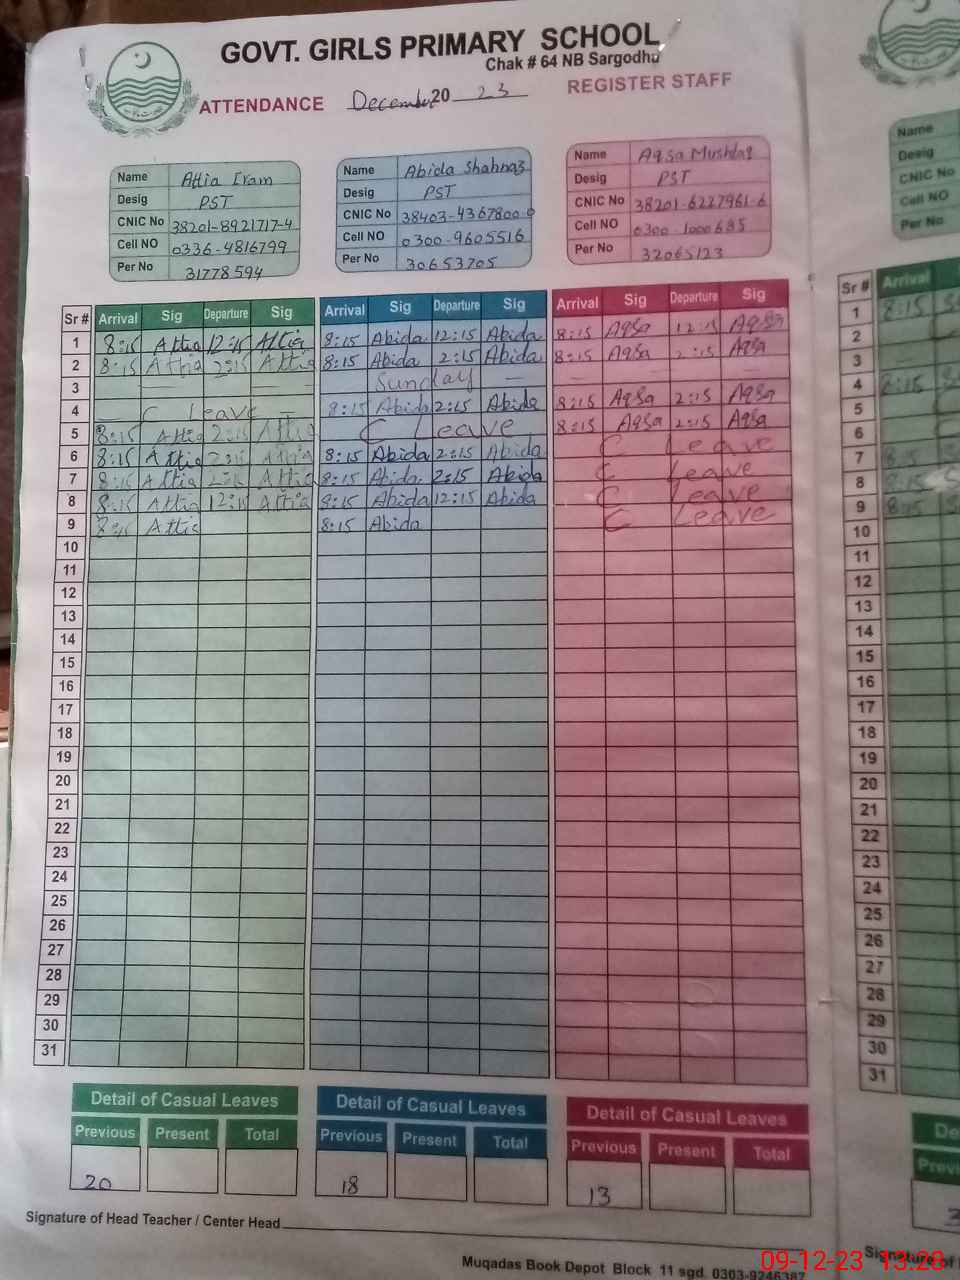 GOVT. GIRLS PRIMARY SCHOOL
Chak # 64 NB Sargodha
ATTENDANCE December 20 23 REGISTER STAFF
Name Attia Iram
Desig PST
CNIC No 38201-8921717-4
Cell NO 0336-4816799
Per No 31778594
Name Abida Shahnaz
Desig PST
CNIC No 38403-4367800-0
Cell NO 0300-9605516
Per No 30653705
Name Aqsa Mushtaq
Desig PST
CNIC No 38201-6227961-6
Cell NO 0300-1000685
Per No 32065123
Sr # Arrival Sig Departure Sig Arrival Sig Departure Sig Arrival Sig Departure Sig
1 8:15 Attia 12:15 Attia 8:15 Abida 12:15 Abida 8:15 Aqsa 12:15 Aqsa
2 8:15 Attia 2:15 Attia 8:15 Abida 2:15 Abida 8:15 Aqsa 2:15 Aqsa
3 — — — Sunday — — — — —
4 — C Leave — 8:15 Abida 2:15 Abida 8:15 Aqsa 2:15 Aqsa
5 8:15 Attia 2:15 Attia C Leave 8:15 Aqsa 2:15 Aqsa
6 8:15 Attia 2:15 Attia 8:15 Abida 2:15 Abida C Leave
7 8:15 Attia 2:15 Attia 8:15 Abida 2:15 Abida C Leave
8 8:15 Attia 12:15 Attia 8:15 Abida 12:15 Abida C Leave
9 8:15 Attia 8:15 Abida C Leave
10
11
12
13
14
15
16
17
18
19
20
21
22
23
24
25
26
27
28
29
30
31
Detail of Casual Leaves Detail of Casual Leaves Detail of Casual Leaves
Previous Present Total Previous Present Total Previous Present Total
20 18 13
Signature of Head Teacher / Center Head
Muqadas Book Depot Block 11 sgd. 0303-9246387
Name
Desig
CNIC No
Cell NO
Per No
Sr # Arrival
1 8:15
2
3
4 8:15
5
6
7 8:15
8 8:15
9 8:15
10
11
12
13
14
15
16
17
18
19
20
21
22
23
24
25
26
27
28
29
30
31
Signature of
09-12-23 13:28